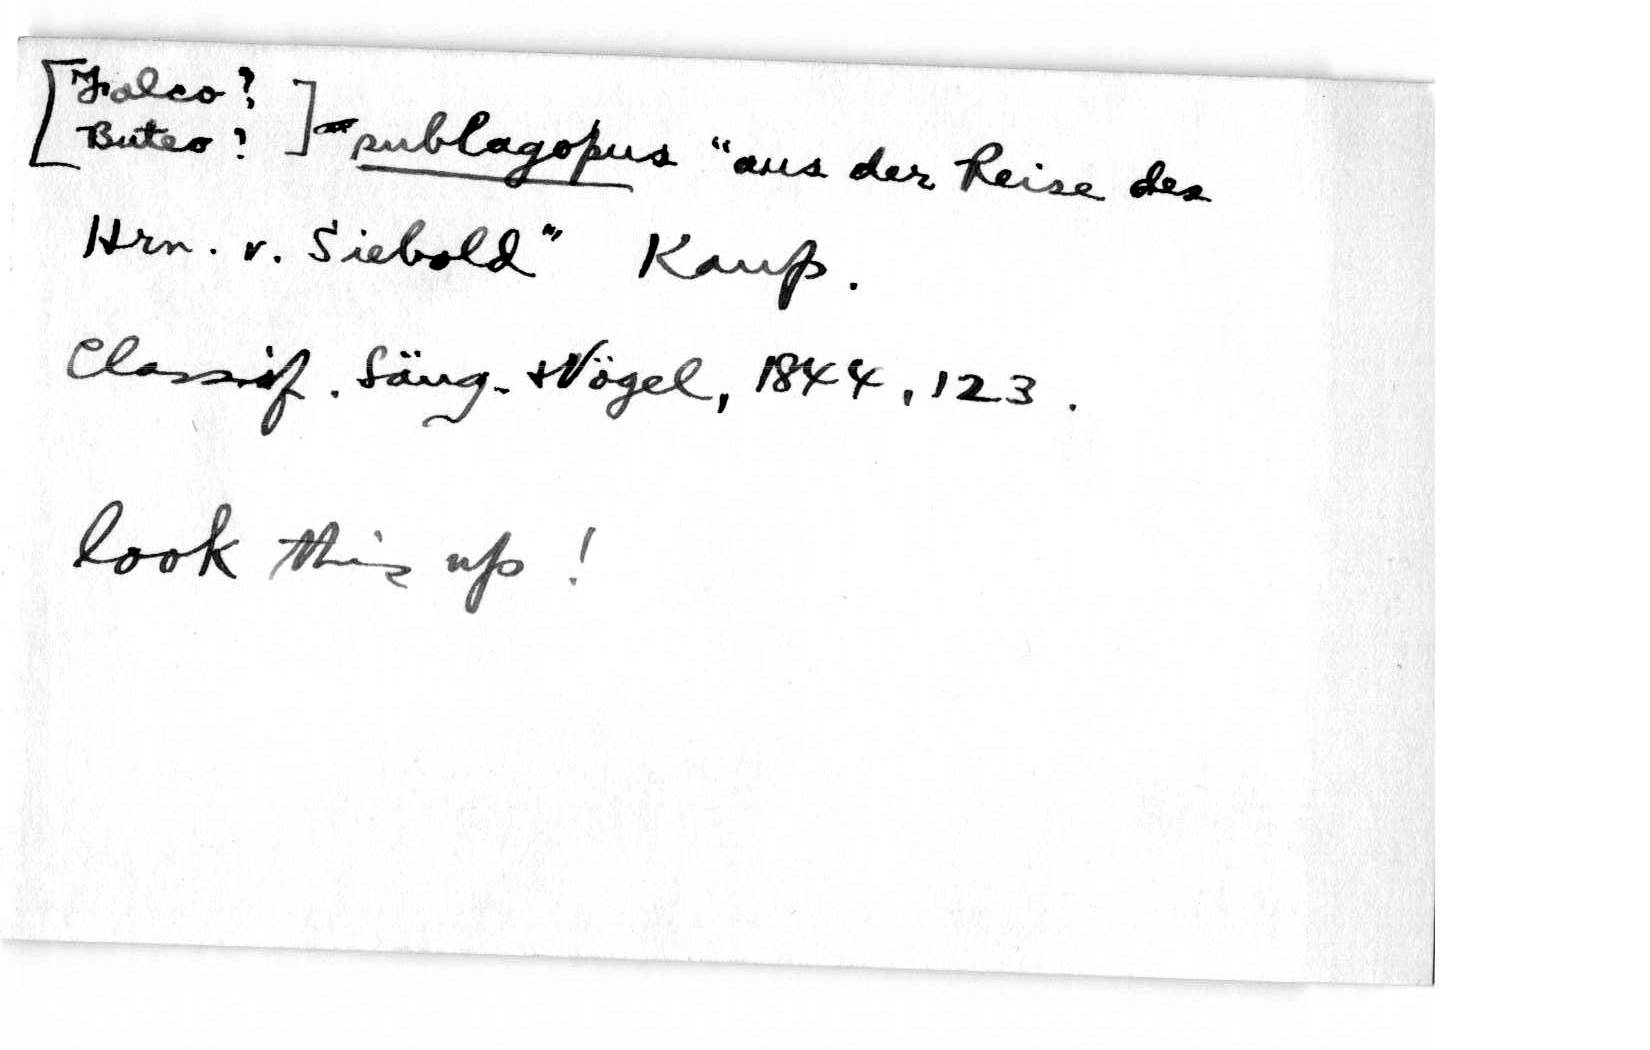 [Falco?
Buteo?] sublagopus "aus der Reise des
Hrn. v. Siebold" Kaup.
Classif. Säug. + Vögel, 1844, 123.
look this up!